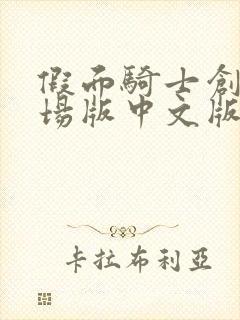 假面騎士創
場版中文版
卡拉布利亞